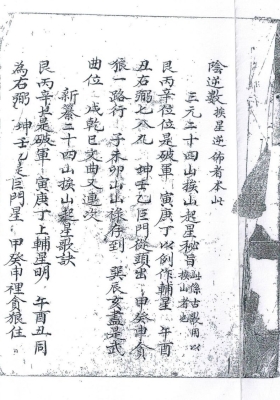 陰逆數 挨星逆佈者本此
三元二十四山挨山起星秘旨 此條古歌用以挨山者也
艮丙辛位位是破軍 寅庚丁以例作輔星 午酉
丑右弼七八九 坤壬乙巨門從頭出 甲癸申貪
狼一路行 子未卯山山祿存到 巽辰亥盡是武
曲位 戌乾巳文曲又連次
新纂二十四山挨山起星歌訣
艮丙辛是破軍 寅庚丁上輔星明 午酉丑同
為右弼 坤壬乙巨門星 甲癸申裡貪狼住